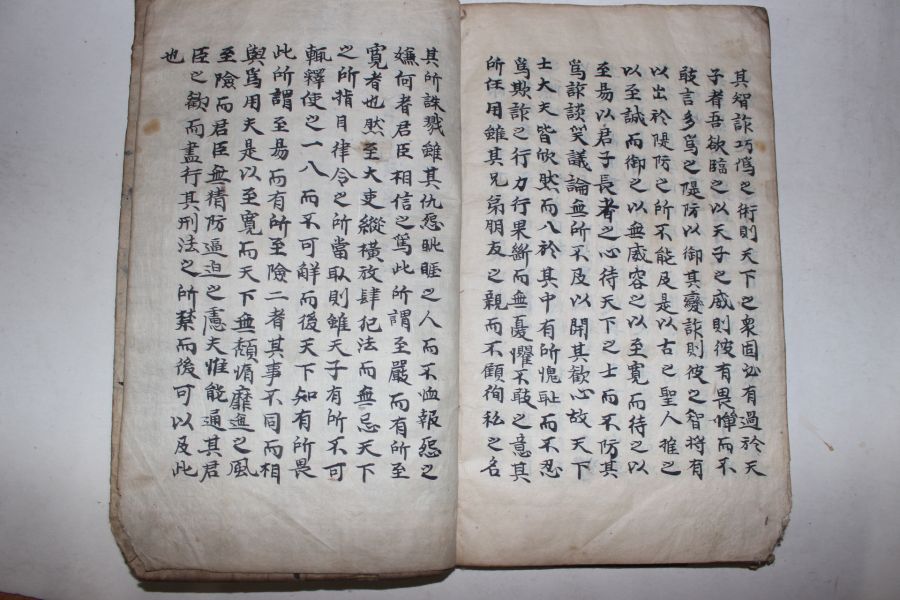 其智詐巧僞之術則天下之衆固必有過於天
子者吾欲臨之以天子之威則彼有畏憚而不
敢言多爲之隄防以御其變詐則彼之智將有
以出於隄防之所不能及是以古之聖人推之
以至誠而御之以無威容之以至寬而待之以
至易以君子長者之心待天下之士而不防其
爲詐談笑議論無所不及以開其歡心故天下
士大夫皆欣然而入於其中有所愧耻而不忍
爲欺詐之行力行果斷而無憂懼不敢之意其
所任用雖其兄弟朋友之親而不顧徇私之名
其所誅戮雖其仇怨眦睚之人而不恤報怨之
嫌何者君臣相信之篤此所謂至嚴而有所至
寬者也然至大吏縱橫放肆犯法而無忌天下
之所指目律令之所當取則雖天子有所不可
輒釋使之一入而不可解而後天下知有所畏
此所謂至易而有所至險二者其事不同而相
與爲用夫是以至寬而天下無頹惰靡迤之風
至險而君臣無猜防逼迫之慮夫惟能通其君
臣之歡而盡行其刑法之所禁而後可以及此
也